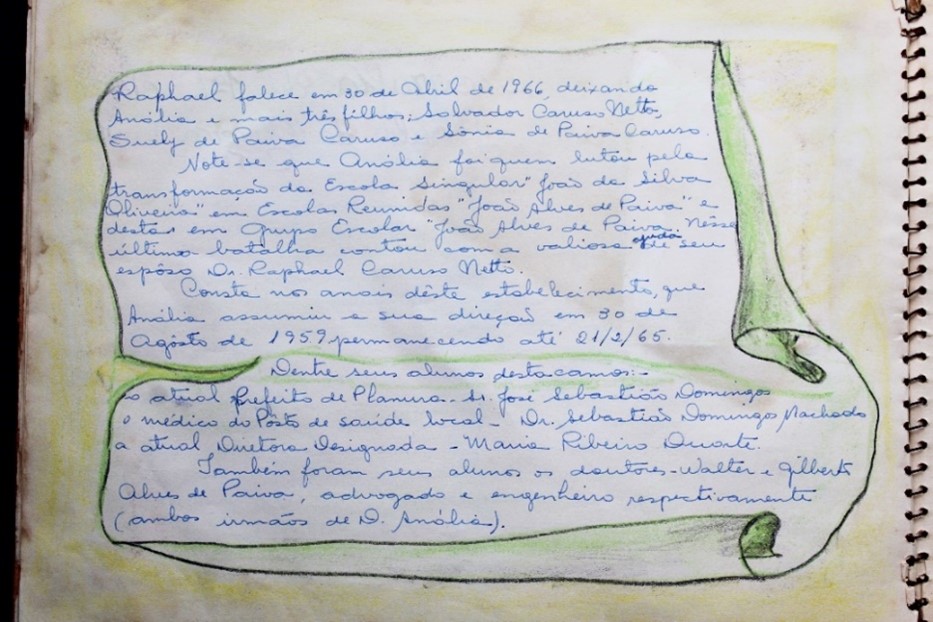 Raphael falece em 30 de Abril de 1966, deixando
Anália e mais três filhos: Salvador Caruso Netto,
Suely de Paiva Caruso e Sônia de Paiva Caruso.
Note-se que Anália foi quem lutou pela
transformação da Escola Singular "João da Silva
Oliveira" em Escolas Reunidas "João Alves de Paiva" e
desta em Grupo Escolar "João Alves de Paiva. Nesse
última batalha contou com a valiosa ajuda de seu
espôso Dr. Raphael Caruso Netto.
Consta nos anais dêste estabelecimento, que
Anália assumiu a sua direção em 30 de
Agôsto de 1959, permanecendo até 21/2/65.
Dentre seus alunos destacamos:-
o atual prefeito de Planura - Sr. José Sebastião Domingos
o médico do Pôsto de saúde local - Dr. Sebastião Domingos Machado
a atual Diretora Designada - Maria Ribeiro Duarte.
Também foram seus alunos os doutores - Walter e Gilberto
Alves de Paiva, advogado e engenheiro respectivamente
(ambos irmãos de D. Anália).